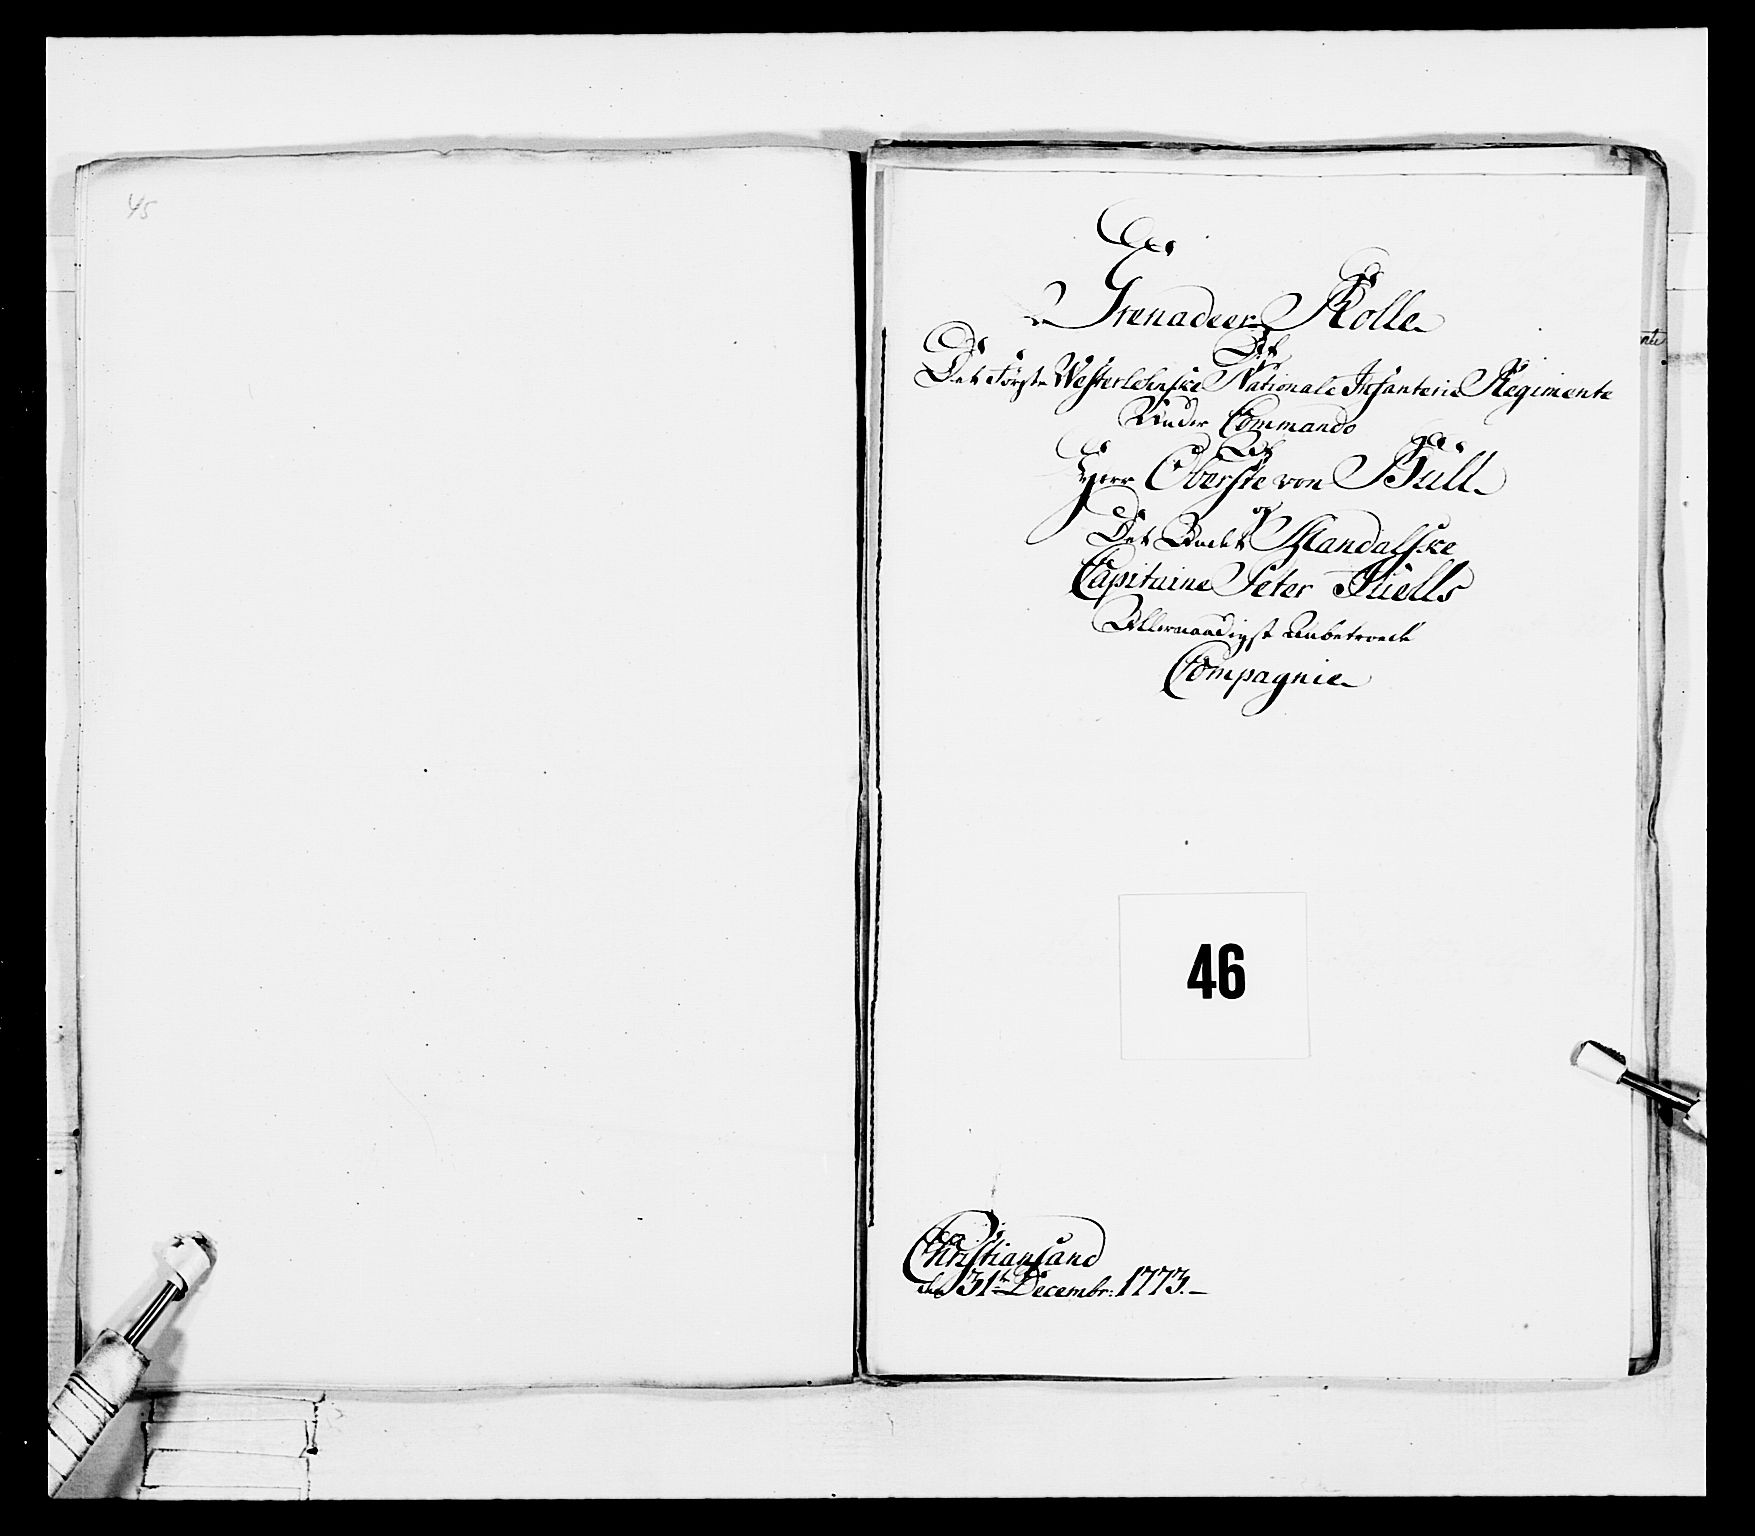 45
Grenadeer Rolle
Af
Det Første Westerlehnske Nationale Infanterie Regimente
Under Commando
Af
Herr Oberste von Büll
og
Det Mandalske
Capitaine Peter Juells
Allernaadigst Anbetroede
Compagnie
46
Christiansand
den 31te Decembr: 1773.